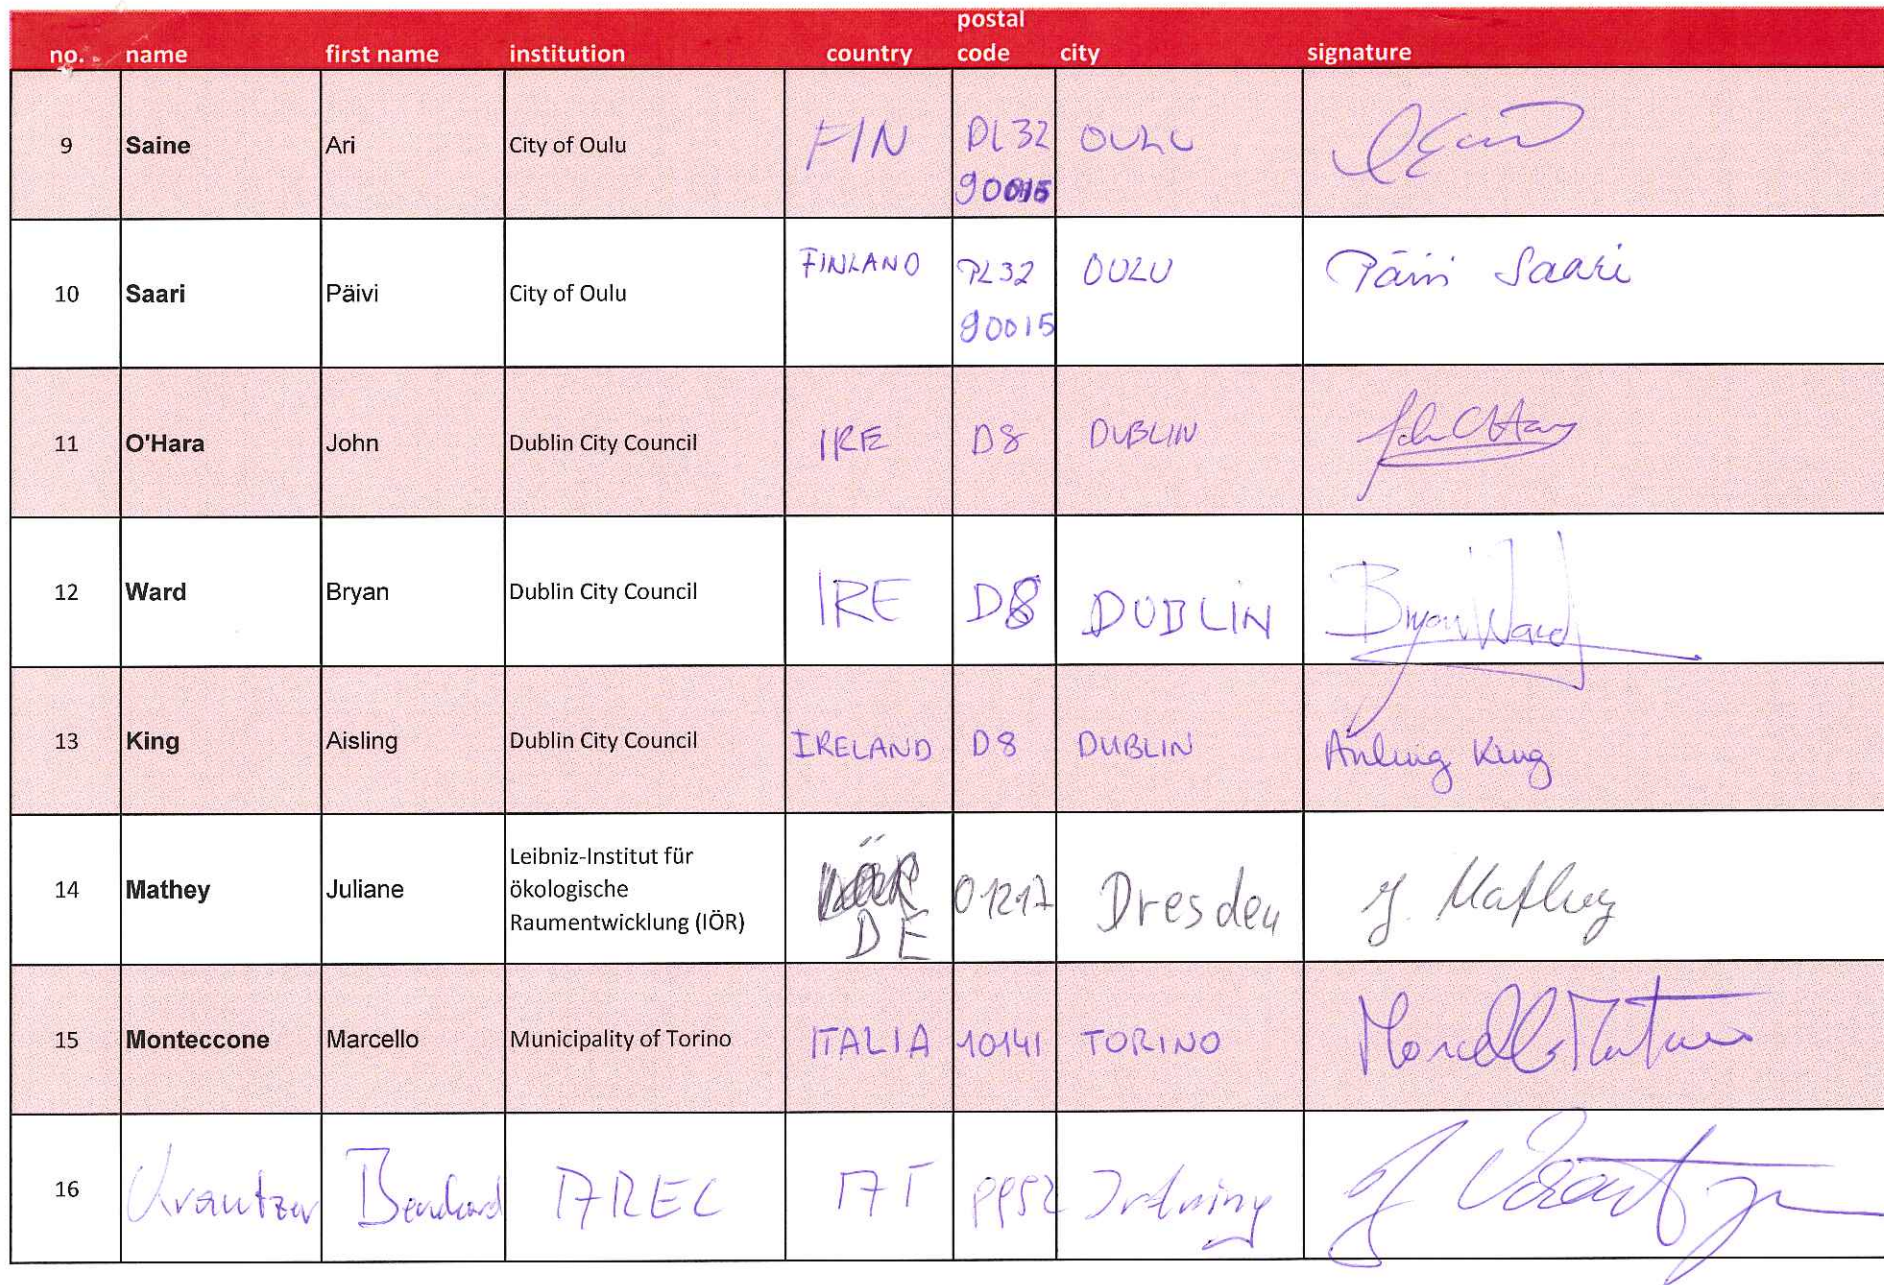 no. name first name institution country postal code city signature
9 Saine Ari City of Oulu FIN PL32 OULU
90015
10 Saari Päivi City of Oulu FINLAND PL32 OULU Päivi Saari
90015
11 O'Hara John Dublin City Council IRE D8 DUBLIN John O'Hara
12 Ward Bryan Dublin City Council IRE D8 DUBLIN Bryan Ward
13 King Aisling Dublin City Council IRELAND D8 DUBLIN Aisling King
14 Mathey Juliane Leibniz-Institut für
ökologische
Raumentwicklung (IÖR) DE 01217 Dresden J. Mathey
15 Monteccone Marcello Municipality of Torino ITALIA 10141 TORINO
16 Krautzer Bernhard AREC AT Irdning